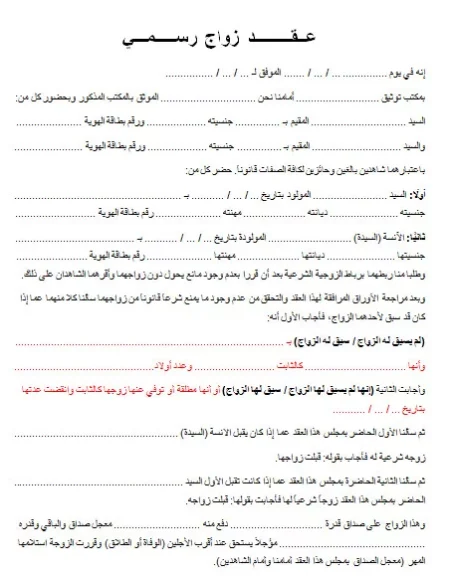 عـقــــــد زواج رســــمــــي
إنه في يوم ................ ... / ... / ....... الموفق لـ ... / ... / ................
بمكتب توثيق ........................ أمامنا نحن ............................ الموثق بالمكتب المذكور وبحضور كل من:
السيد ................................ المقيم بـ .................. جنسيته .................. ورقم بطاقة الهوية ........................
والسيد ................................ المقيم بـ .................. جنسيته .................. ورقم بطاقة الهوية ........................
باعتبارهما شاهدين بالغين وحائزين لكافة الصفات قانوناً. حضر كل من:
أولاً: السيد ............................ المولود بتاريخ ... / ... / ........... بـ ................................................
جنسيته .................. ديانته .................. مهنته .................. رقم بطاقة الهوية ........................
ثانيًا: الآنسة (السيدة) ........................ المولودة بتاريخ ... / ... / ........... بـ ................................
جنسيها .................. ديانتها .................. مهنتها .................. رقم بطاقة الهوية ........................
وطلبا منا ربطهما برباط الزوجية الشرعية بعد أن قررا بعدم وجود مانع يحول دون زواجهما وأقرهما الشاهدان على ذلك.
وبعد مراجعة الأوراق المرافقة لهذا العقد والتحقق من عدم وجود ما يمنع شرعاً قانوناً من زواجهما سألنا كلا منهما عما إذا
كان قد سبق لأحدهما الزواج، فأجاب الأول أنه:
(لم يسبق له الزواج / سبق له الزواج) بـ ................................................
وأنها .................. كالثابت .................. وعدد أولاد..................
وأجابت الثانية (إنها لم يسبق لها الزواج / سبق لها الزواج) أو أنها مطلقة أو توفي عنها زوجها كالثابت وانقضت عدتها
بتاريخ ... / ... / ...........
ثم سألنا الأول الحاضر بمجلس هذا العقد عما إذا كان يقبل الانسة (السيدة) ................................................
زوجه شرعية له فأجاب بقوله: قبلت زواجها.
ثم سألنا الثانية الحاضرة بمجلس هذا العقد عما إذا كانت تقبل الأول السيد ................................................
الحاضر بمجلس هذا العقد زوجاً شرعياً لها فأجابت بقولها: قبلت زواجه.
وهذا الزواج على صداق قدرة ........................ دفع منه ........................ معجل صداق والباقي وقدره
................................ مؤجلاً يستحق عند أقرب الأجلين (الوفاة أو الطلاق) وقررت الزوجة استلامها
المهر (معجل الصداق بمجلس هذا العقد أمامنا وأمام الشاهدين).